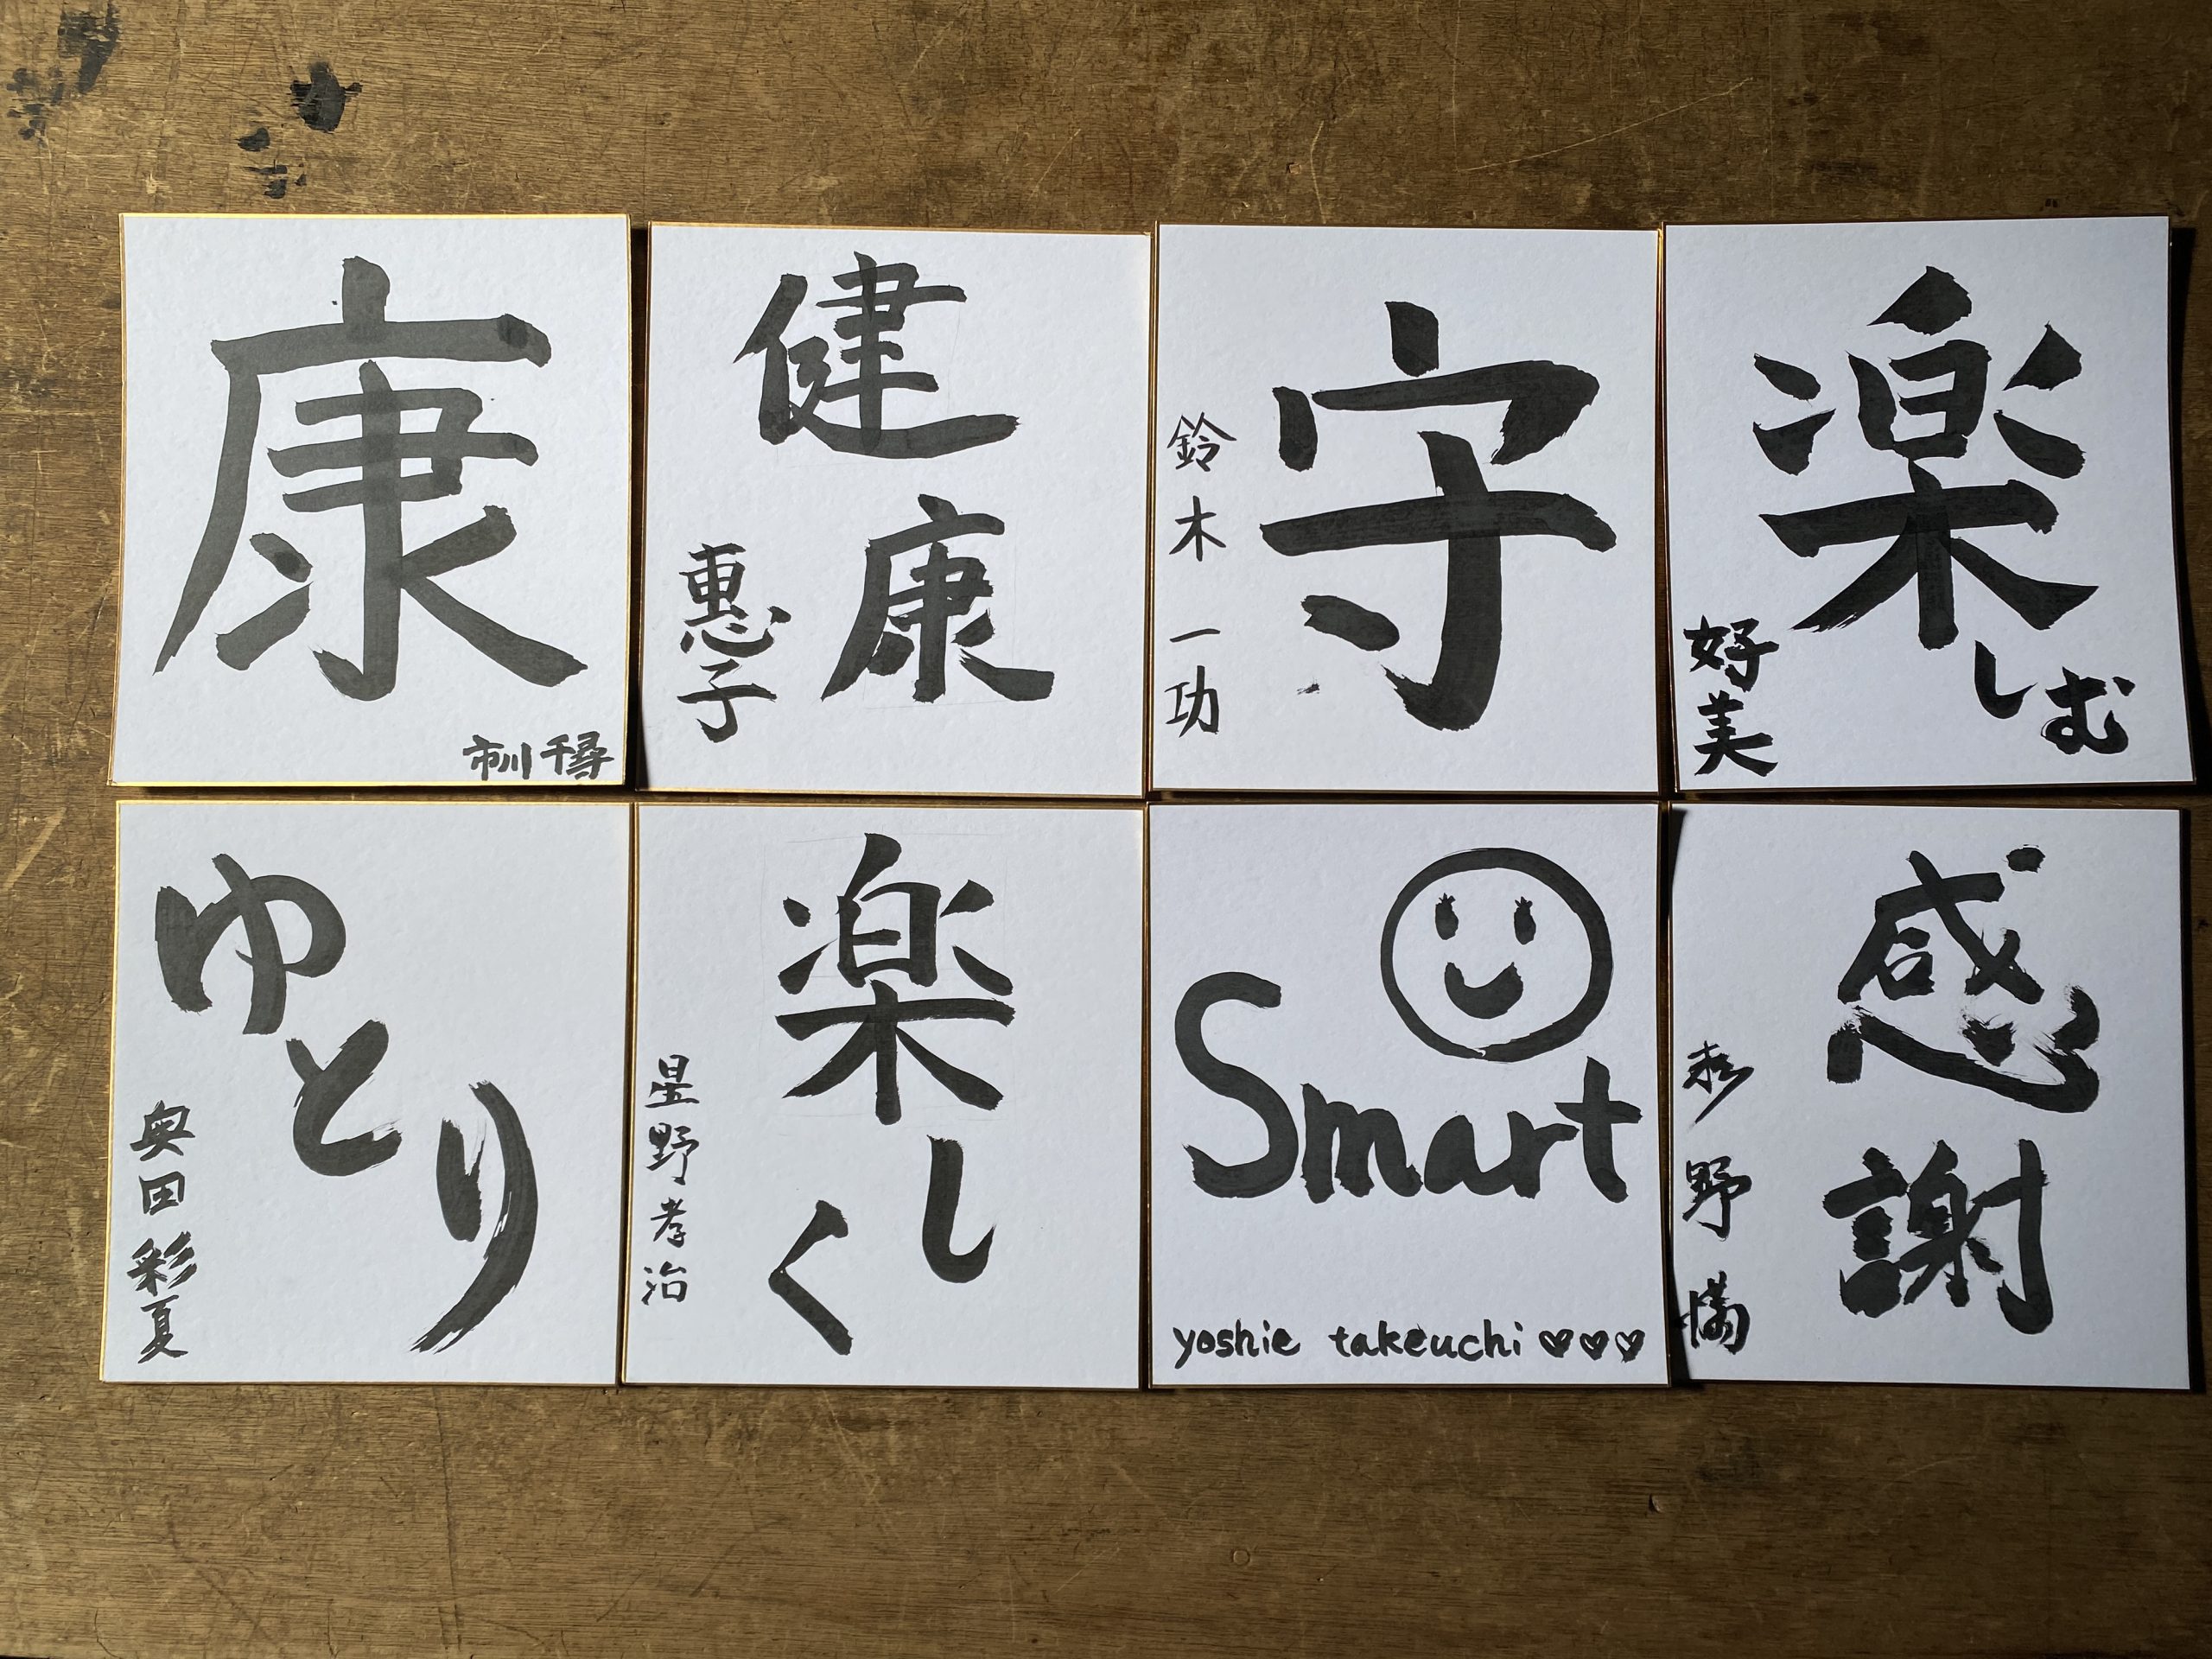 康
市川 千尋
健
康
恵子
守
鈴木一功
楽
しむ
好美
ゆとり
奥田彩夏
楽し
く
星野孝治
Smart
yoshie takeuchi ♡♡♡
感
謝
杉野満